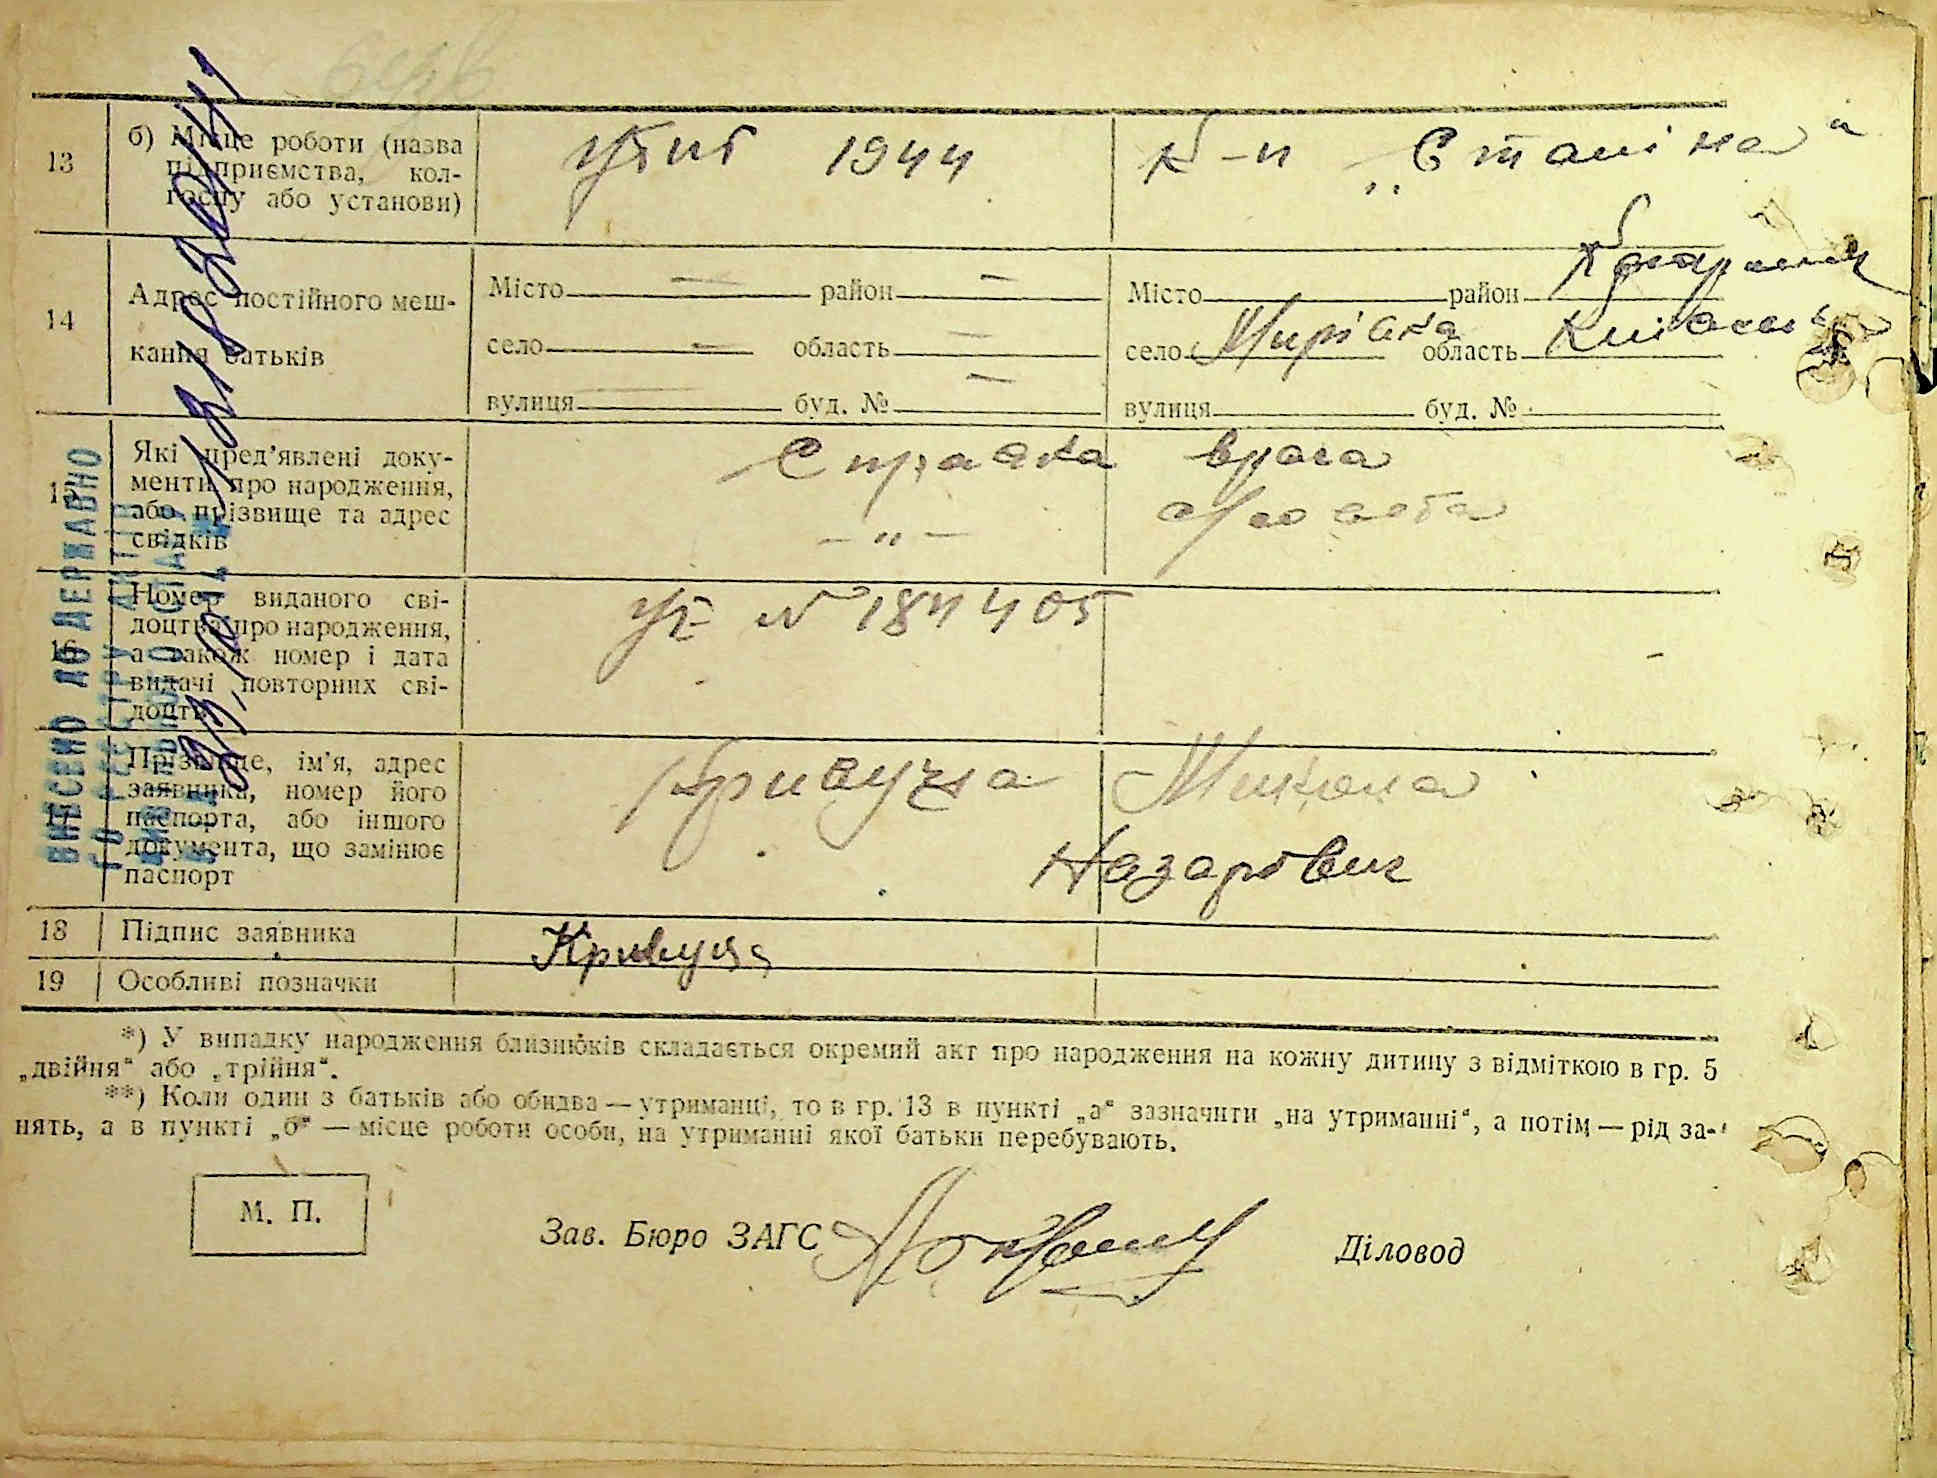 13 б) Місце роботи (назва підприємства, колгоспу або установи) 1944 к-п „Сталіна“
14 Адрес постійного мешкання батьків
Місто — район — Місто район
село — область — село Мирівка область
вулиця — буд. № — вулиця буд. №
15 Які пред’явлені документи про народження, або прізвище та адрес свідків Справка врача
— „ —
16 Номер виданого свідоцтва про народження, а також номер і дата видачі повторних свідоцтв № 184405
17 Прізвище, ім’я, адрес заявника, номер його паспорта, або іншого документа, що замінює паспорт Кривуша Микола
Назарович
18 Підпис заявника Кривуша
19 Особливі позначки
*) У випадку народження близнюків складається окремий акт про народження на кожну дитину з відміткою в гр. 5
„двійня“ або „трійня“.
**) Коли один з батьків або обидва — утриманці, то в гр. 13 в пункті „а“ зазначити „на утриманні“, а потім — рід за-
нять, а в пункті „б“ — місце роботи особи, на утриманні якої батьки перебувають.
М. П.
Зав. Бюро ЗАГС
Діловод
ВНЕСЕНО ДО ДЕРЖАВНО
ГО РЕЄСТРУ АКТІВ